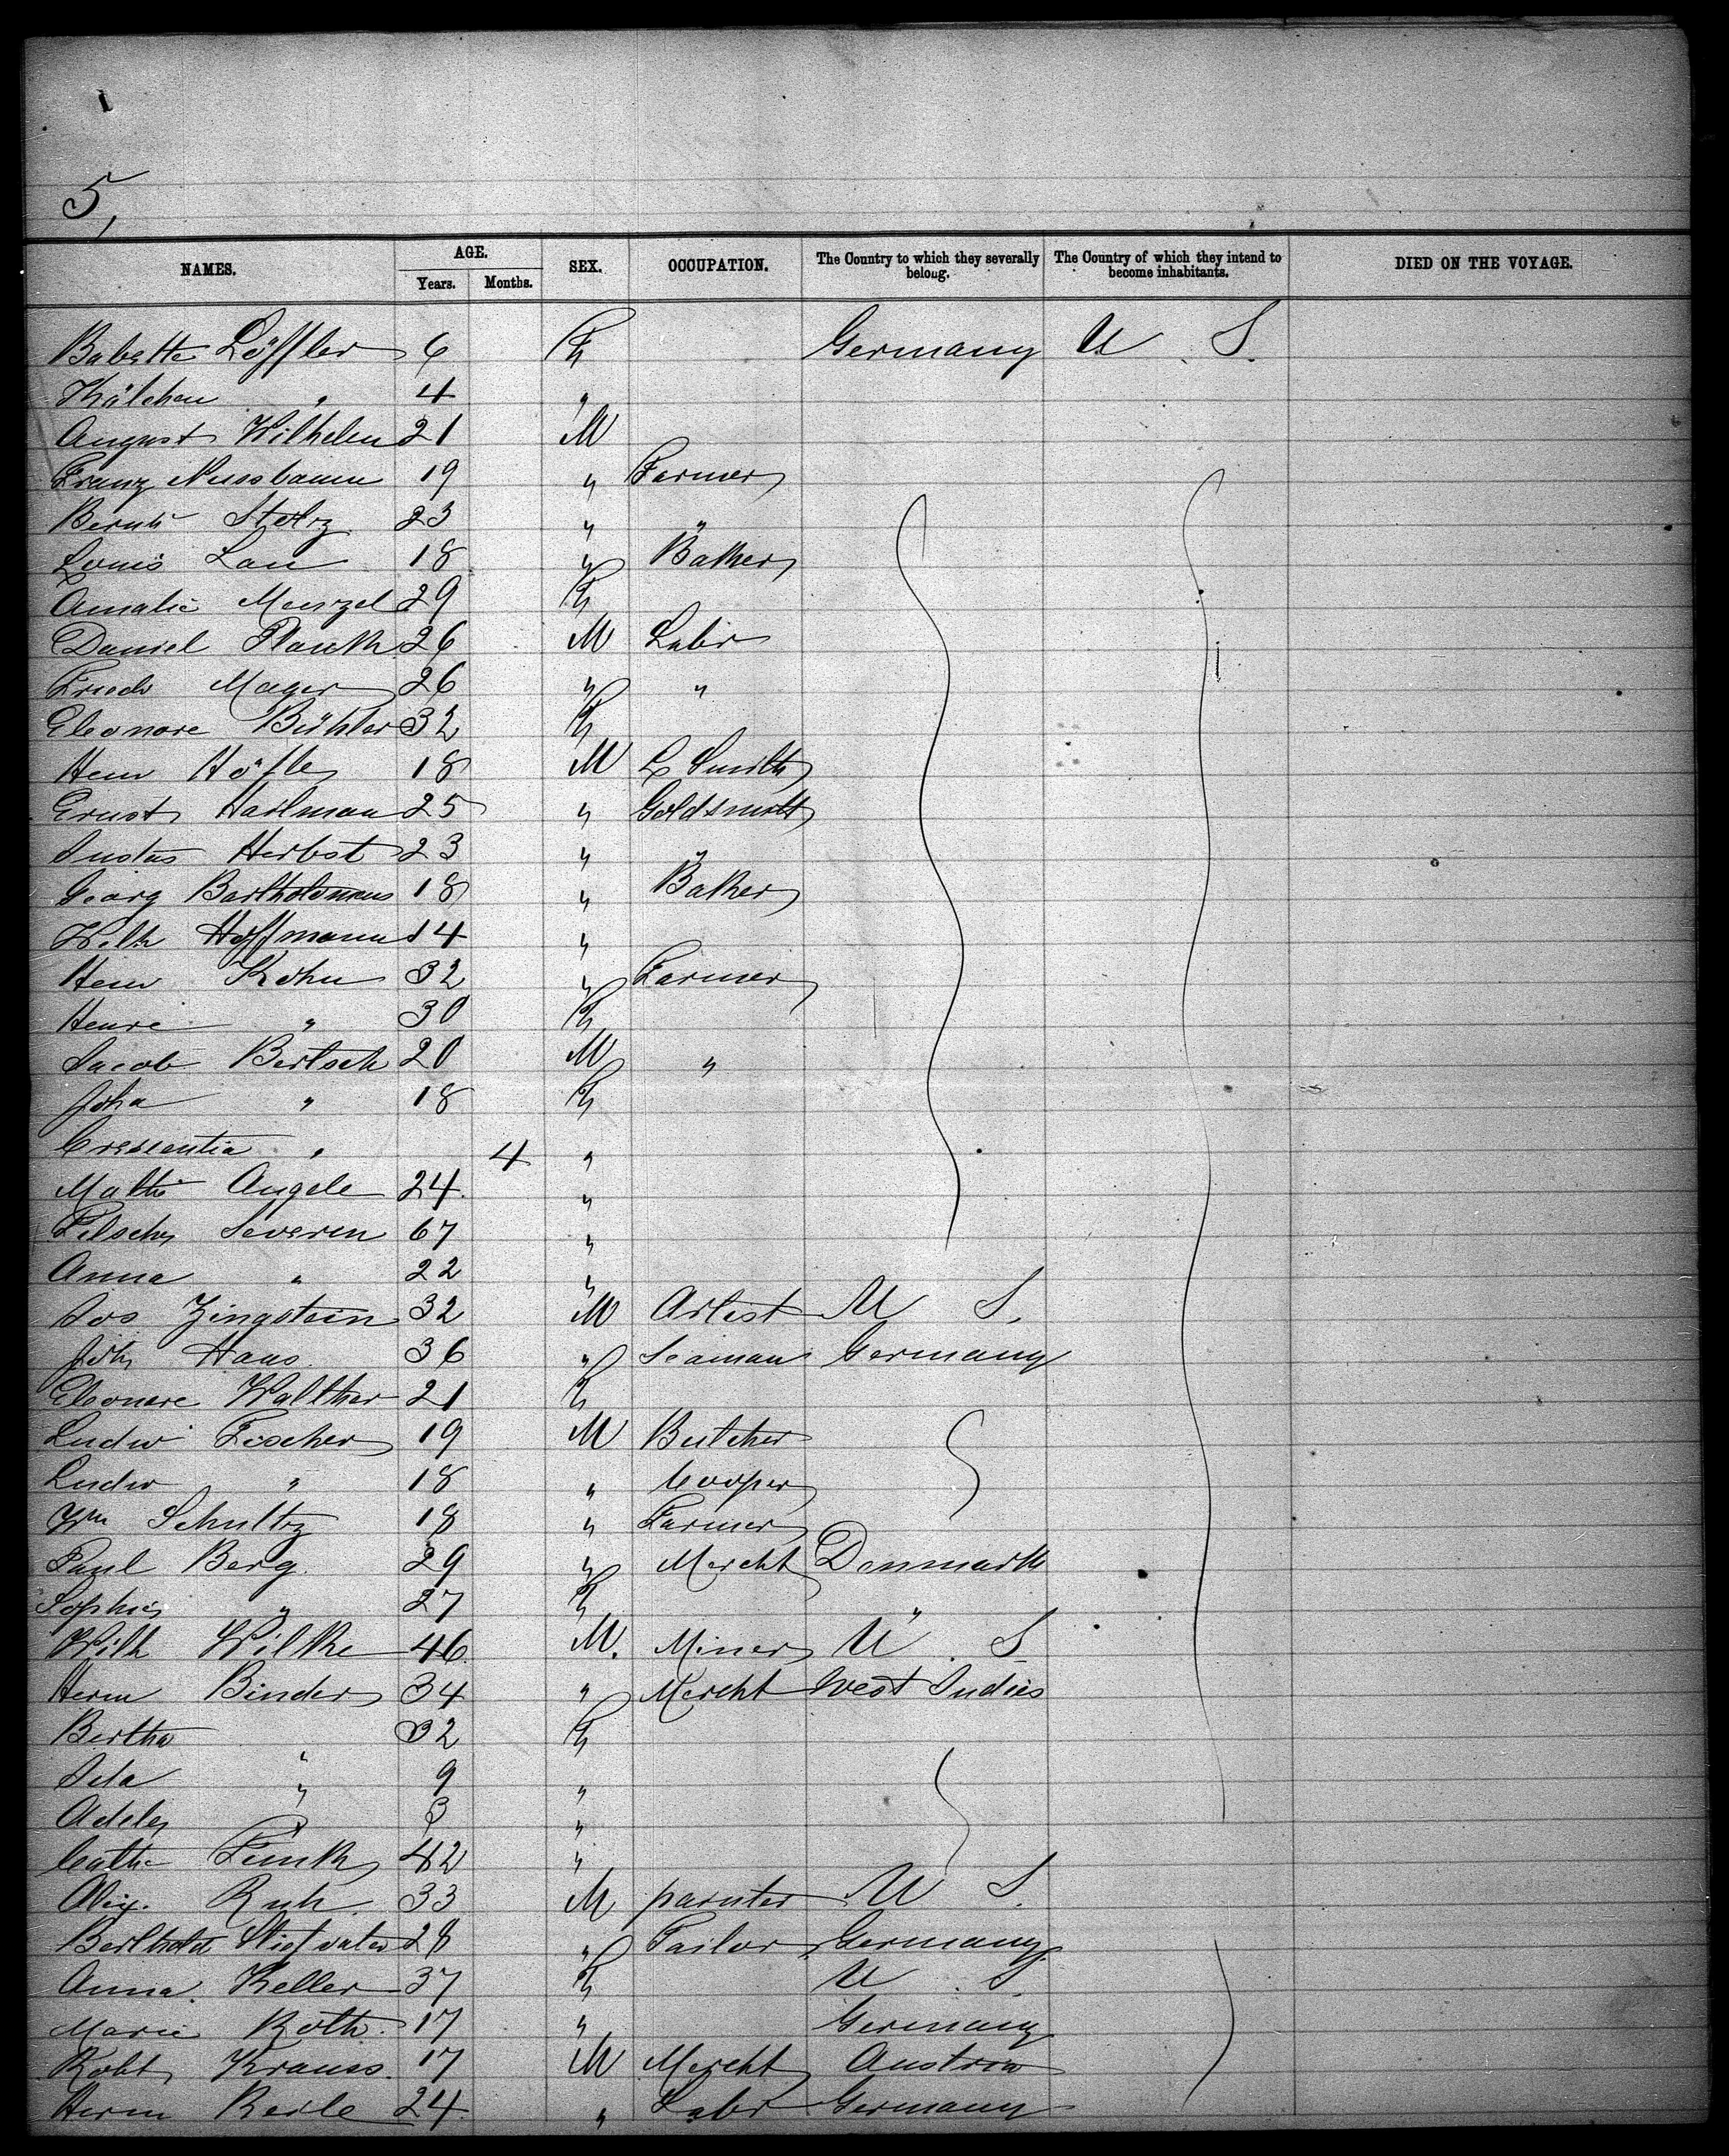 5,
NAMES. AGE. SEX. OCCUPATION. The Country to which they severally belong. The Country of which they intend to become inhabitants. DIED ON THE VOYAGE.
Years. Months.
Babette Löffler 6 F Germany U. S.
Kätchen " 4 "
August Wilhelm 21 M
Franz Nussbaum 19 " Farmer
Bernh Stolz 23 " "
Louis Lau 18 " Baker
Amalie Menzel 29 F
Daniel Plank 26 M Labr
Friedr Mager 26 " "
Eleonore Bühler 32 F
Henr Höfle 18 M L Smith
Ernst Harlman 25 " Goldsmith
Justus Herbst 23 " "
Georg Bartholomaus 18 " Baker
Wilh Hoffmann 14 "
Henr Kohn 32 " Farmer
Henre " 30 F
Jacob Bertsch 20 M "
Joha " 18 F
Crescentia " 4 "
Math Angele 24 "
Severin 67 "
Anna " 22 "
Jos Zingstein 32 M Artist U S.
Joh Haus 36 " Seaman Germany
Eleonore Walther 21 F
Ludw Fischer 19 M Butcher
Ludw " 18 " Cooper
Wm Schultz 18 " Farmer
Paul Berg 29 " Mercht Denmark
Sophie " 27 F "
Wilh Wilke 46 M. Miner U. S
Herm Binder 34 " Mercht West Indies
Bertha " 32 F
Ida " 9 "
Adele " 3 "
Cath Funk 42 "
Alex. Ruh 33 M painter U S.
Berthold Stiefvater 28 " Tailor Germany
Anna Keller 37 F U. S.
Marie Roth. 17 " Germany
Robt Krauss 17 M Mercht Austria
Herm Reile 24 " Labr Germany